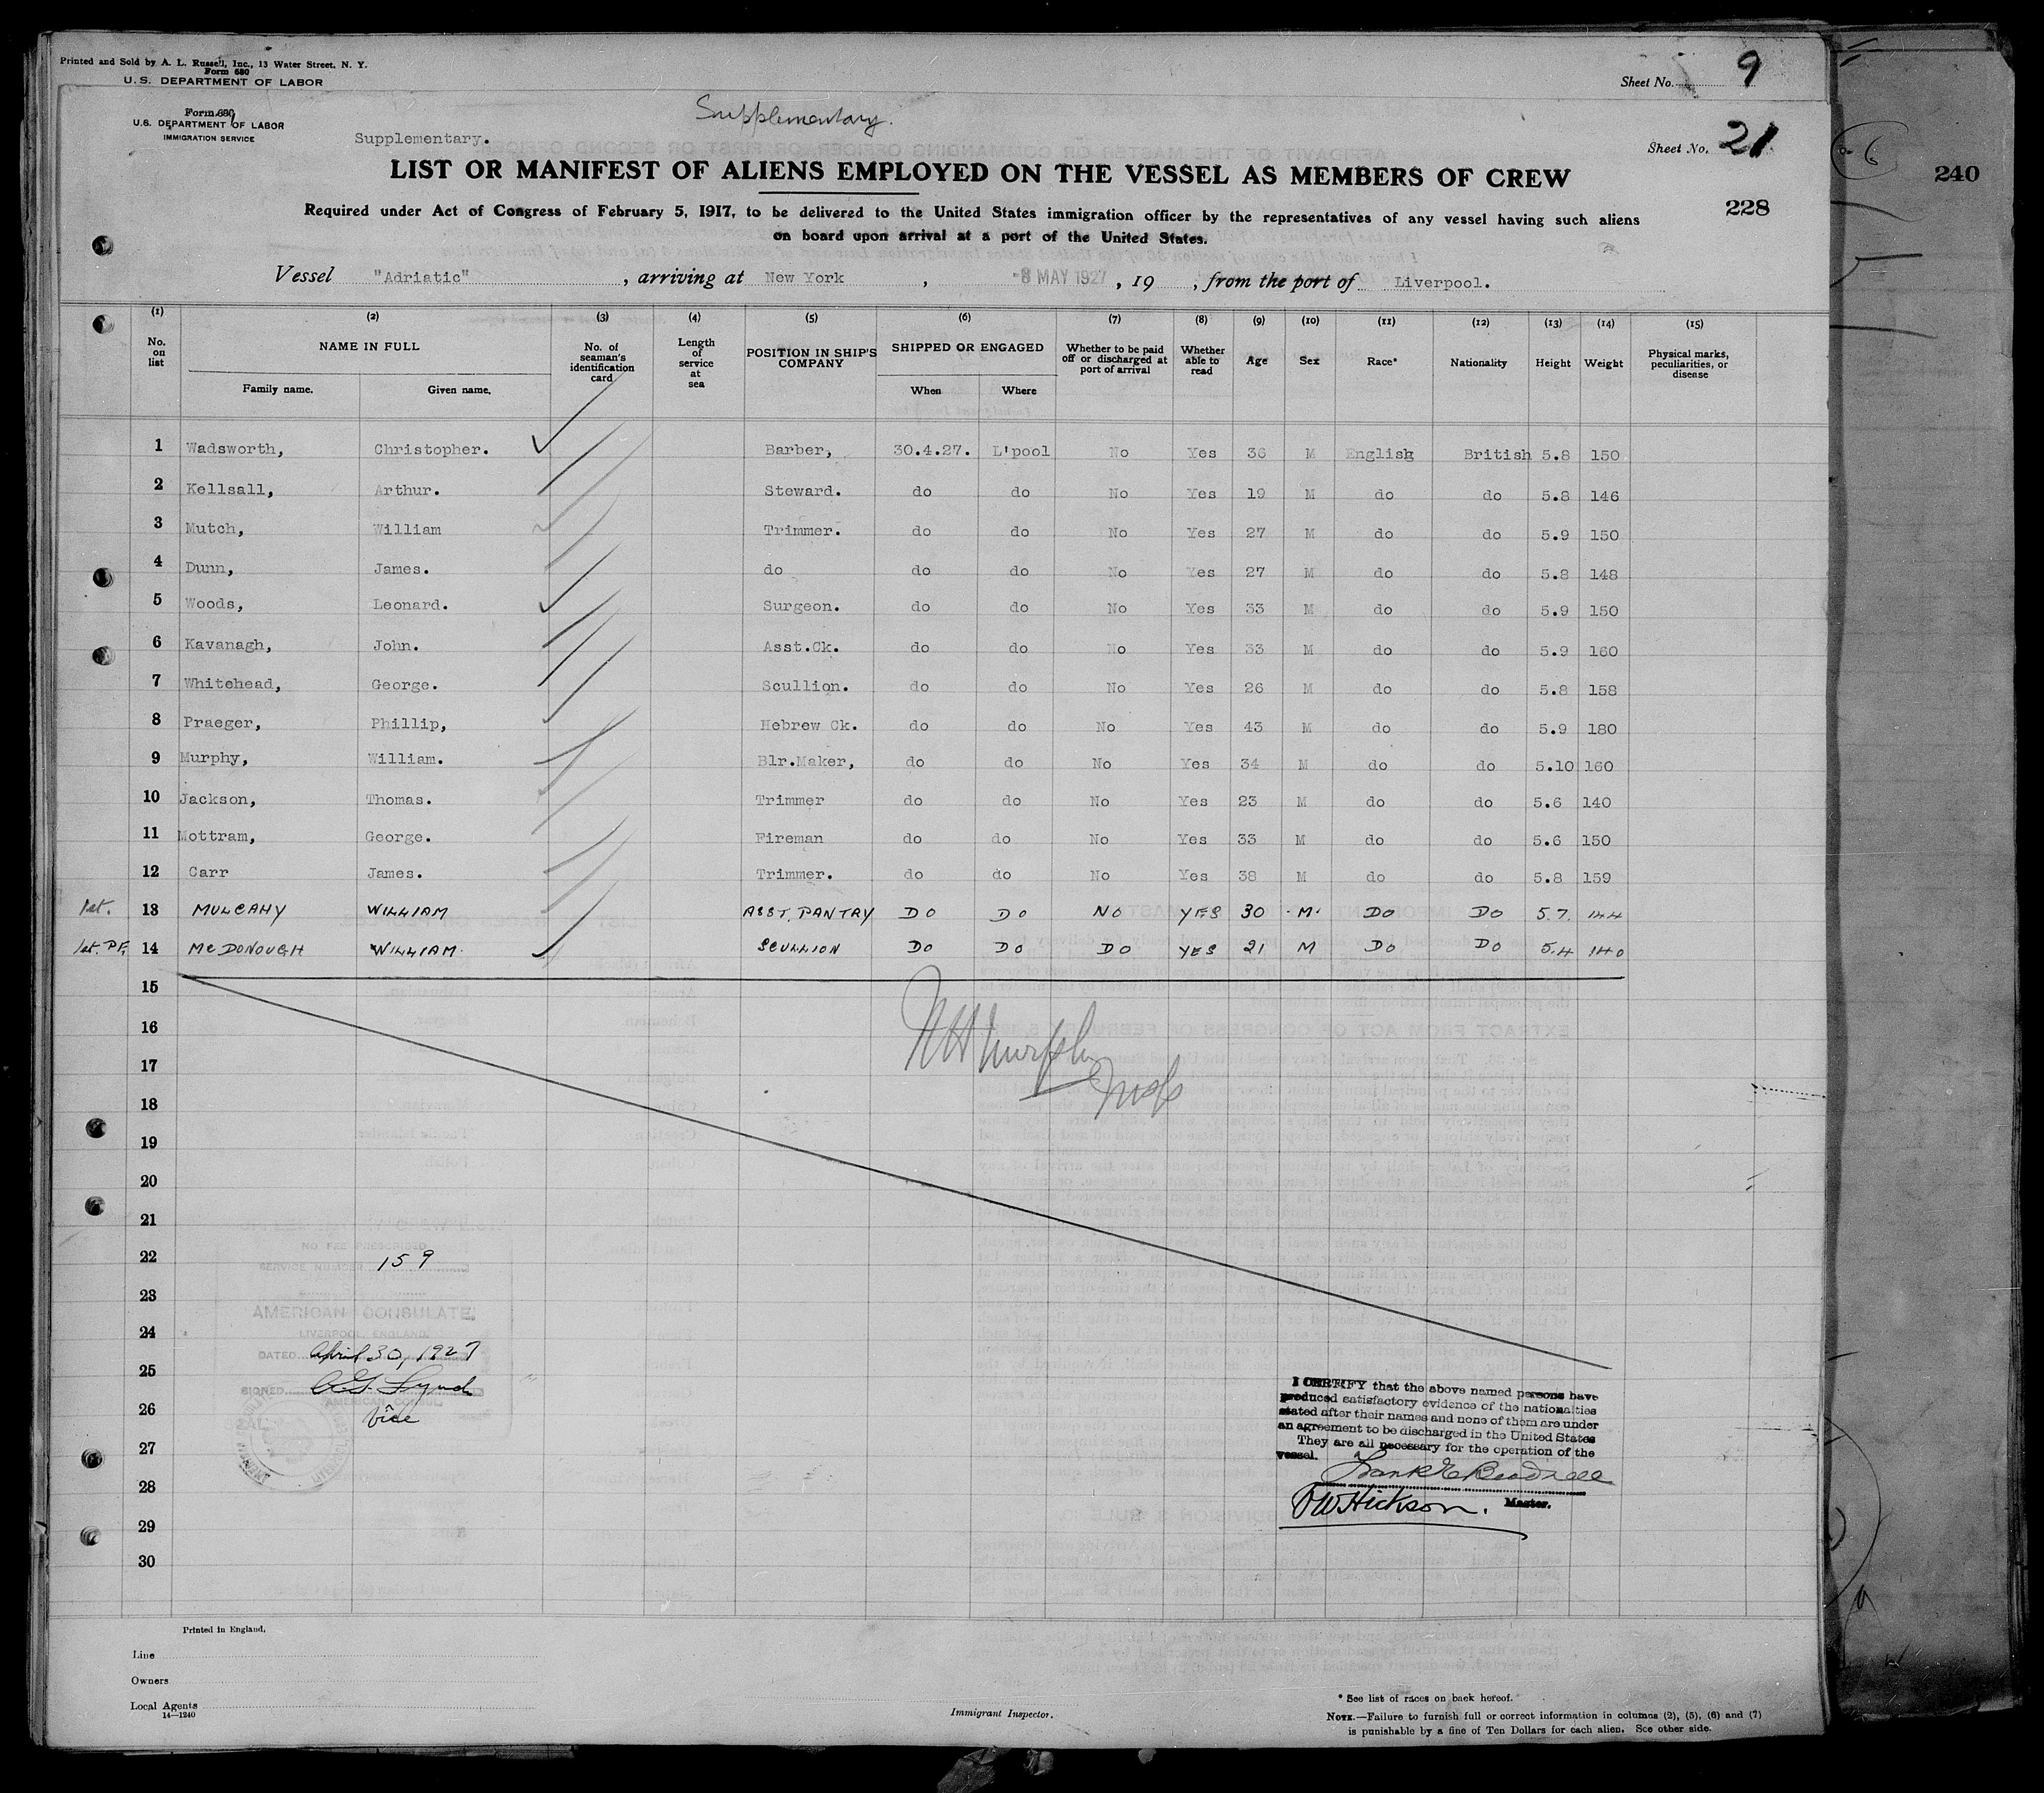 Printed and Sold by A. L. Russell, Inc., 13 Water Street, N. Y.
Form 680
U. S. DEPARTMENT OF LABOR
Sheet No. 9
Form 680
U. S. DEPARTMENT OF LABOR
IMMIGRATION SERVICE
Supplementary.
Supplementary.
Sheet No. 21
LIST OR MANIFEST OF ALIENS EMPLOYED ON THE VESSEL AS MEMBERS OF CREW
240
228
Required under Act of Congress of February 5, 1917, to be delivered to the United States immigration officer by the representatives of any vessel having such aliens
on board upon arrival at a port of the United States.
Vessel "Adriatic", arriving at New York, -8 MAY 1927, 19 , from the port of Liverpool.
(1) (2) (3) (4) (5) (6) (7) (8) (9) (10) (11) (12) (13) (14) (15)
No. on list NAME IN FULL Family name. Given name. No. of seaman's identification card Length of service at sea POSITION IN SHIP'S COMPANY SHIPPED OR ENGAGED When Where Whether to be paid off or discharged at port of arrival Whether able to read Age Sex Race* Nationality Height Weight Physical marks, peculiarities, or disease
1 Wadsworth, Christopher. Barber, 30.4.27. L'pool No Yes 36 M English British 5.8 150
2 Kellsall, Arthur. Steward. do do No Yes 19 M do do 5.8 146
3 Mutch, William Trimmer. do do No Yes 27 M do do 5.9 150
4 Dunn, James. do do do No Yes 27 M do do 5.8 148
5 Woods, Leonard. Surgeon. do do No Yes 33 M do do 5.9 150
6 Kavanagh, John. Asst.Ck. do do No Yes 33 M do do 5.9 160
7 Whitehead, George. Scullion. do do No Yes 26 M do do 5.8 158
8 Praeger, Phillip, Hebrew Ck. do do No Yes 43 M do do 5.9 180
9 Murphy, William. Blr.Maker, do do No Yes 34 M do do 5.10 160
10 Jackson, Thomas. Trimmer do do No Yes 23 M do do 5.6 140
11 Mottram, George. Fireman do do No Yes 33 M do do 5.6 150
12 Carr James. Trimmer. do do No Yes 38 M do do 5.8 159
1st. 13 MULCAHY WILLIAM ASST. PANTRY DO DO NO YES 30 M. DO DO 5.7. 144
1st. P.F. 14 McDONOUGH WILLIAM. SCULLION DO DO DO YES 21 M DO DO 5.4 140
15
16
17
18
19
20
21
22
23
24
25
26
27
28
29
30
NO FEE PRESCRIBED
SERVICE NUMBER 159
AMERICAN CONSULATE
LIVERPOOL, ENGLAND.
DATED April 30, 1927
SIGNED
AMERICAN CONSUL
Vice
I CERTIFY that the above named persons have
produced satisfactory evidence of the nationalties
stated after their names and none of them are under
an agreement to be discharged in the United States
They are all necessary for the operation of the
vessel.
Master.
Hickson.
Printed in England.
Line
Owners
Local Agents
14—1240
Immigrant Inspector.
* See list of races on back hereof.
NOTE.—Failure to furnish full or correct information in columns (2), (5), (6) and (7)
is punishable by a fine of Ten Dollars for each alien. See other side.